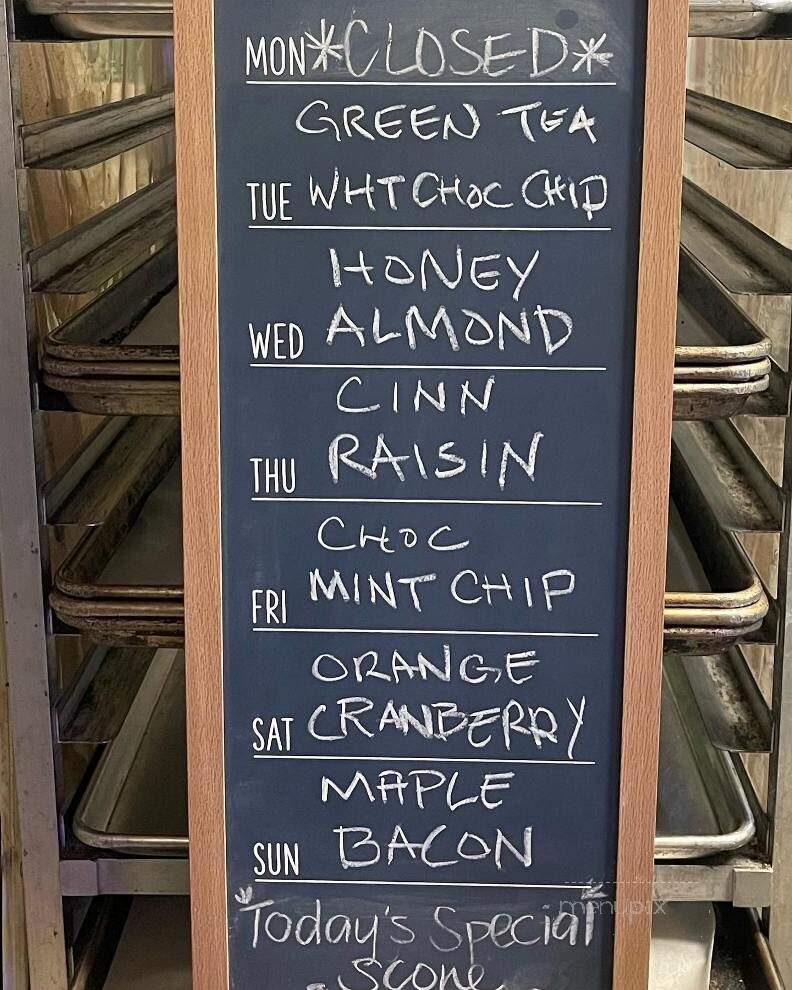 MON *CLOSED*
GREEN TEA
TUE WHT CHOC CHIP
HONEY
WED ALMOND
CINN
THU RAISIN
CHOC
FRI MINT CHIP
ORANGE
SAT CRANBERRY
MAPLE
SUN BACON
Today's Special
menupix
Scone